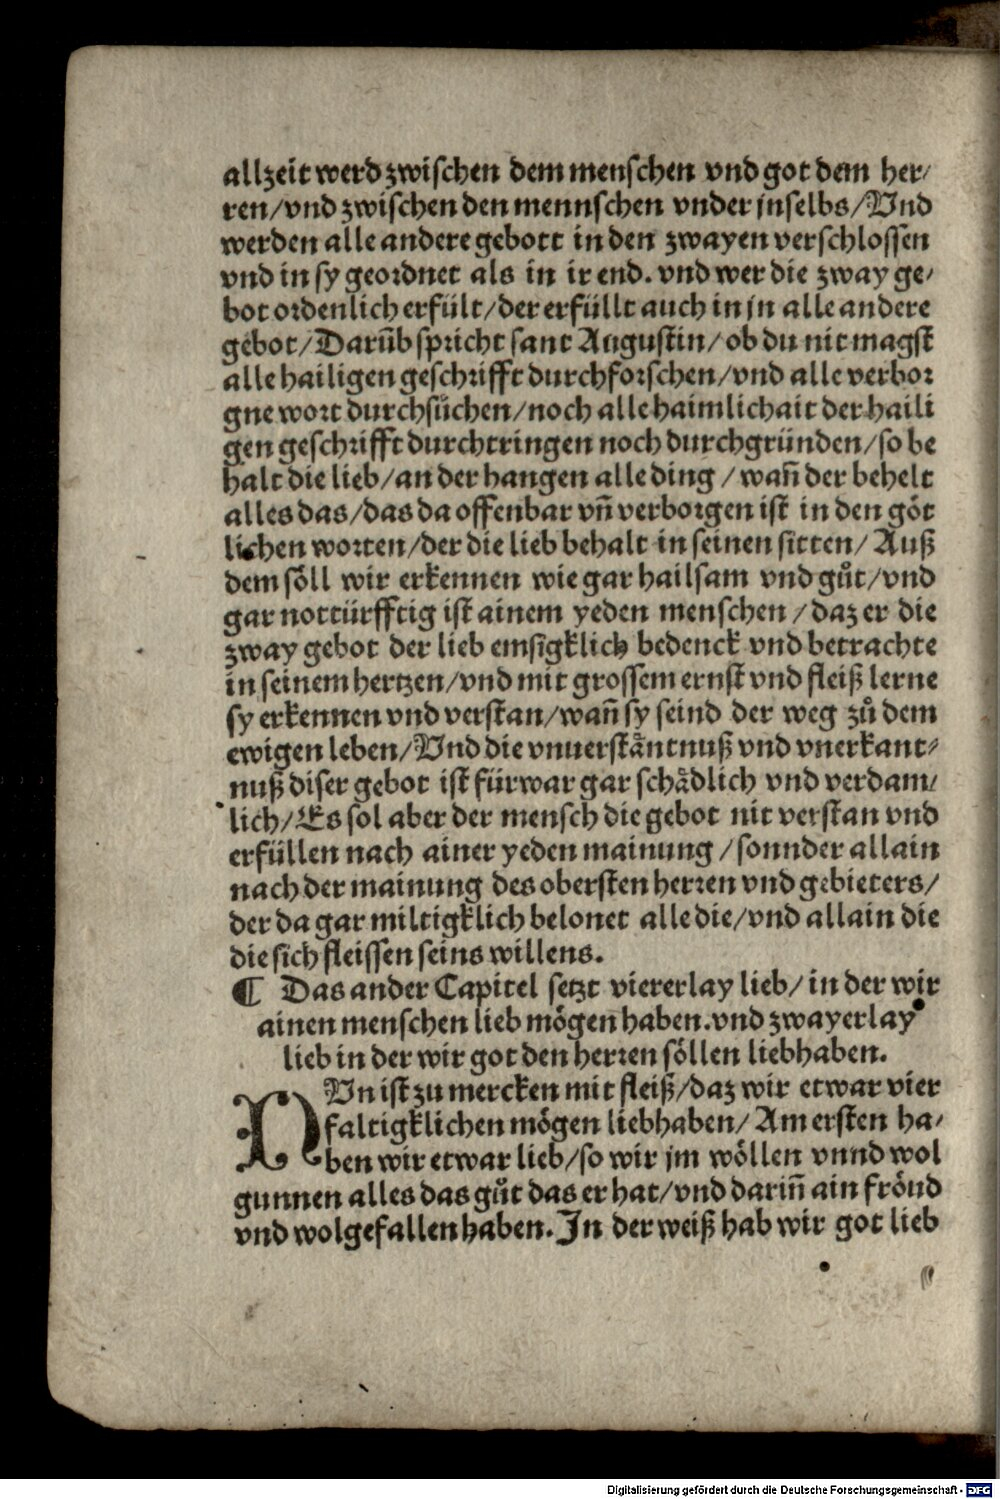 allzeit werd zwischen dem menschen vnd got dem her/
ren/vnd zwischen den mennschen vnder jnselbs/Vnd
werden alle andere gebott in den zwayen verschlossen
vnd in sy geordnet als in ir end. vnd wer die zway ge/
bot ordenlich erfült/der erfüllt auch in jn alle andere
gebot/Darūb spricht sant Augustin/ob du nit magst
alle hailigen geschrifft durchforschen/vnd alle verbor
gne wort durchsůchen/noch alle haimlichait der haili
gen geschrifft durchtringen noch durchgründen/so be
halt die lieb/an der hangen alle ding/wañ der behelt
alles das/das da offenbar vñ verborgen ist in den göt
lichen worten/der die lieb behalt in seinen sitten/Auß
dem söll wir erkennen wie gar hailsam vnd gůt/vnd
gar nottürfftig ist ainem yeden menschen/daz er die
zway gebot der lieb emsigklich bedenck vnd betrachte
in seinem hertzen/vnd mit grossem ernst vnd fleiß lerne
sy erkennen vnd verstan/wañ sy seind der weg zů dem
ewigen leben/Vnd die vnuerständtnuß vnd vnerkant/
nuß diser gebot ist fürwar gar schädlich vnd verdam/
lich/Es sol aber der mensch die gebot nit verstan vnd
erfüllen nach ainer yeden mainung/sonnder allain
nach der mainung des obersten herren vnd gebieters/
der da gar miltigklich belonet alle die/vnd allain die
die sich fleissen seins willens.
¶ Das ander Capitel setzt viererlay lieb/in der wir
ainen menschen lieb mögen haben.vnd zwayerlay
lieb in der wir got den herren söllen liebhaben.
NVn ist zu mercken mit fleiß/daz wir etwar vier
faltigklichen mögen liebhaben/Am ersten ha/
ben wir etwar lieb/so wir jm wöllen vnnd wol
gunnen alles das gůt das er hat/vnd dariñ ain fröud
vnd wolgefallen haben. In der weiß hab wir got lieb
Digitalisierung gefördert durch die Deutsche Forschungsgemeinschaft - DFG